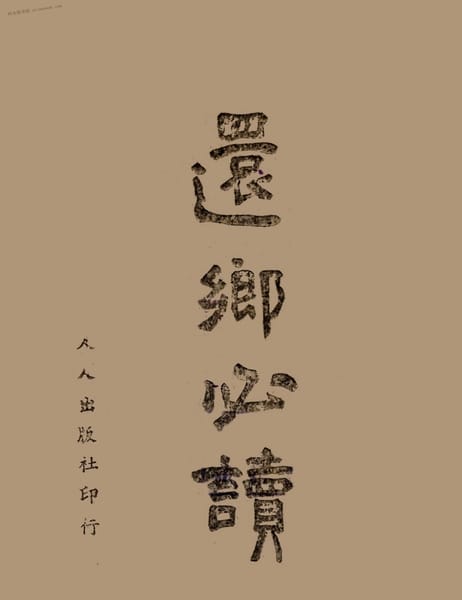 還鄉必讀
凡人出版社印行